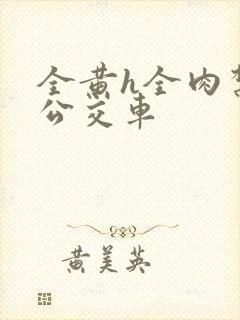 全黄h全肉
公交车
黄美英